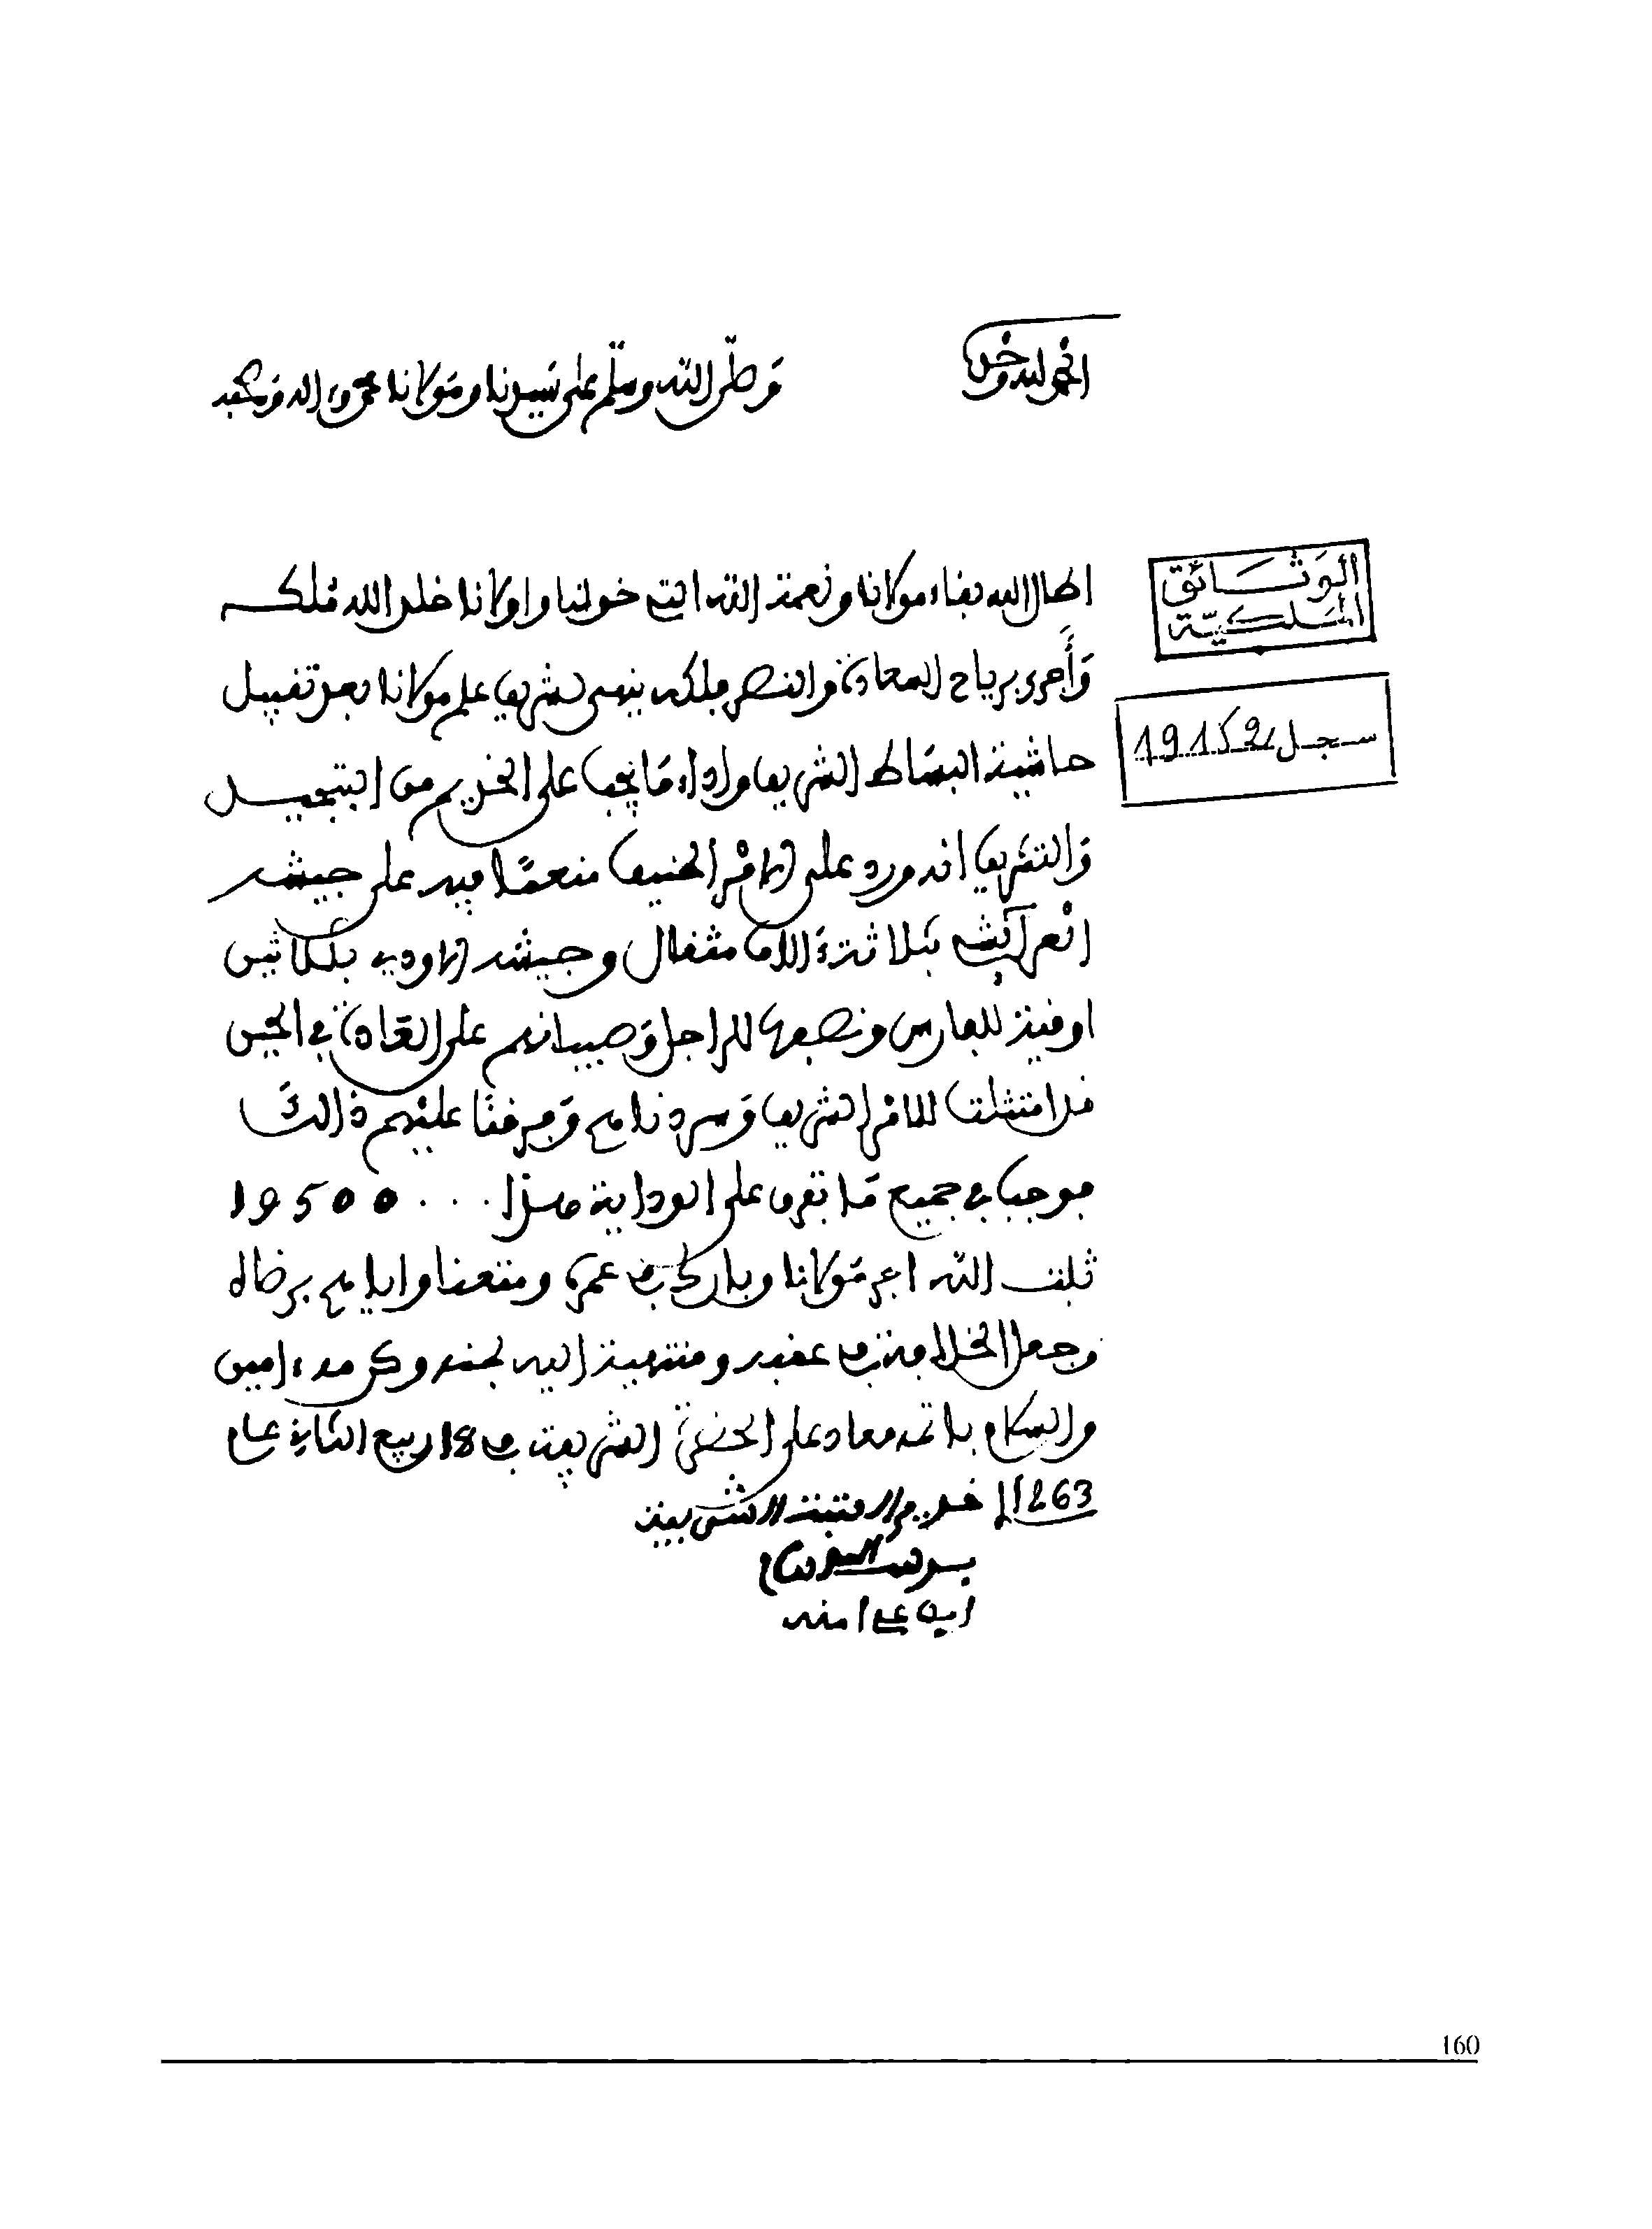 الحمد لله وحده
وصلى الله وسلم على سيدنا ومولانا محمد وءاله وصحبه
الوثائق
الملكية
سجل 19152
اطال الله بقاء مولانا ونعمة الله التي خولنا واولانا خلد الله ملكه
وأجرى برياح السعادة والنصر فلكه ينهى لشريف علم مولانا بعد تقبيل
حاشية البساط الشريف واداء ما يجب على الخديم من التبجيل
والتشريف انه ورد على الامر الحنيف منعما فيه على جيشه
بثلاثة ءالاف مثقال وجيشه الاودي بثلاثين
اوقية للفارس ونصفها للراجل وصبيانهم على العادة في الجيش
فلامتثلت للامر الشريف وسردنا مع وفرقنا عليهم ذالك
فوجب في جميع ما تفرق على الودايا هذا . . . 19500
تقبل الله اجر مولانا وبارك في عمره ومتعنا وايا مع برضاه
وجعل الخلافة في عقبه ومنتهية اليه بمنه وكرمه ءامين
والسلام بلاتمه معاد على الحضرة الشريفة في 18 ربيع الثاني عام
1263 خديم العتبة الشريفة
الله امنه
160